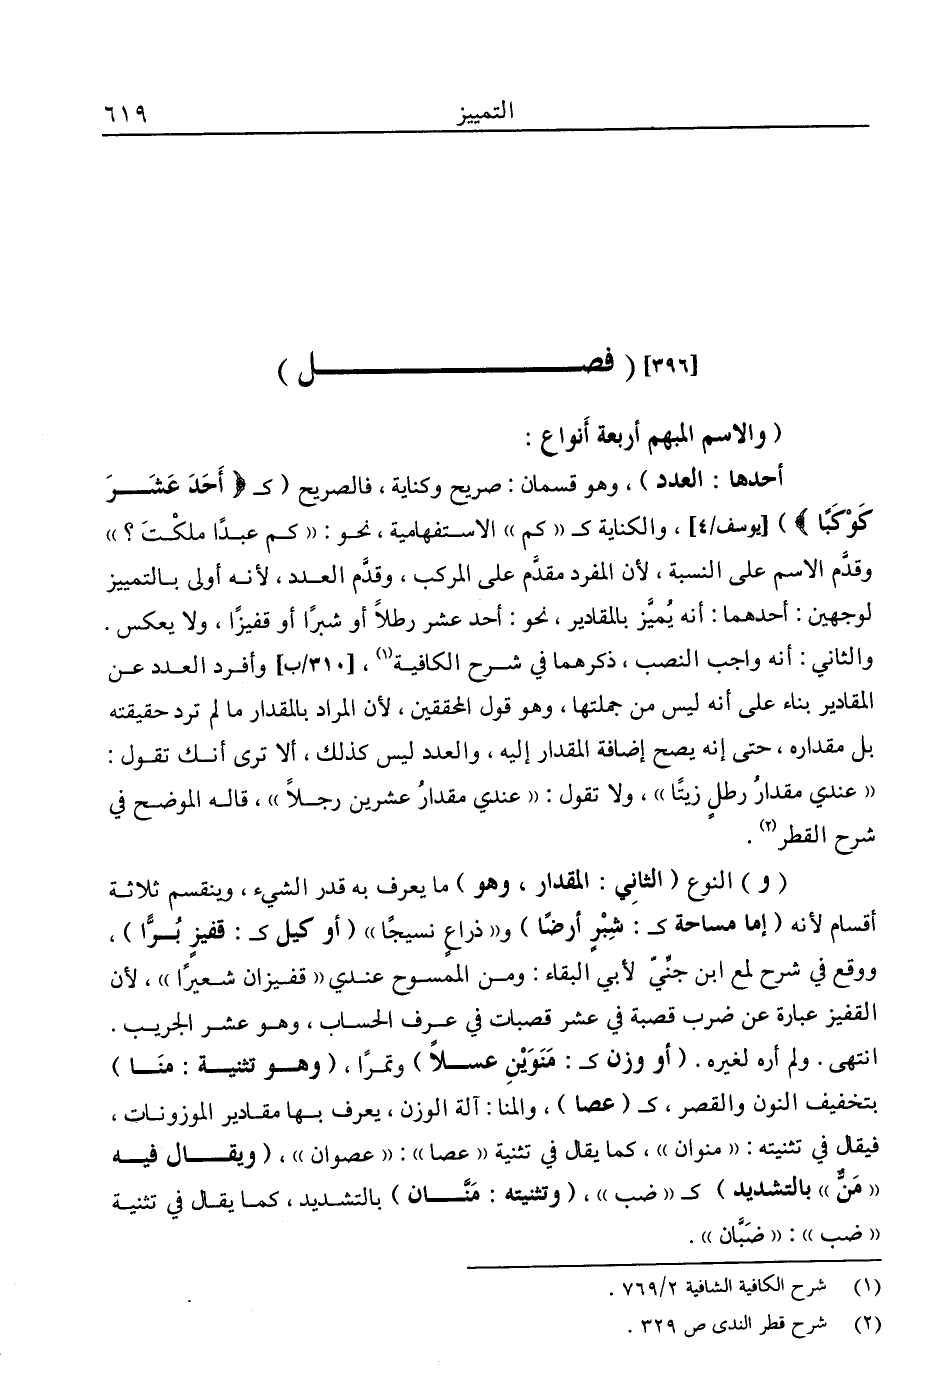 التمييز ٦١٩
[٣٩٦] ( فصــــــل )
( والاسم المبهم أربعة أنواع :
أحدها : العدد ) ، وهو قسمان : صريح وكناية ، فالصريح ( كـ ﴿ أَحَدَ عَشَــرَ
كَوْكَبًا ﴾ ) [يوسف/٤] ، والكناية كـ « كم » الاستفهامية ، نحو : « كـم عبـدًا ملكْتَ ؟ »
وقدَّم الاسم على النسبة ، لأن المفرد مقدَّم على المركب ، وقدَّم العـدد ، لأنـه أولى بـالتمييز
لوجهين : أحدهما : أنه يُميَّز بالمقادير ، نحو : أحد عشر رطلاً أو شبرًا أو قفيزًا ، ولا يعكس .
والثاني : أنه واجب النصب ، ذكرهما في شـرح الكافية(١) ، [٣١٠/ب] وأفـرد العـدد عـن
المقادير بناء على أنه ليس من جملتها ، وهو قول المحققين ، لأن المراد بالمقدار ما لم ترد حقيقته
بل مقداره ، حتى إنه يصح إضافة المقدار إليه ، والعدد ليس كذلك ، ألا ترى أنـك تقول :
« عندي مقدارُ رطلٍ زيتًا » ، ولا تقول : « عندي مقدارُ عشرين رجـلاً » ، قالـه الموضـح في
شرح القطر(٢) .
( و ) النوع ( الثانِي : المقدار ، وهو ) ما يعرف به قدر الشيء ، وينقسم ثلاثـة
أقسام لأنه ( إما مساحة كـ : شِبْرٍ أرضًا ) و« ذراعٍ نسيجًا » ( أو كيل كـ : قفيزٍ بُـرًّا ) ،
ووقع في شرح لمع ابن جنِّيّ لأبي البقاء : ومـن الممسـوح عنـدي « قفـيزان شـعيرًا » ، لأن
القفيز عبارة عن ضرب قصبة في عشر قصبات في عـرف الحساب ، وهـو عشـر الجريب .
انتهى . ولم أره لغيره . ( أو وزن كـ : مَنَوَيْنِ عسـلاً ) وتمرًا ، ( وهـو تثنيـة : منَـا )
بتخفيف النون والقصر ، كـ ( عصا ) ، والمنا : آلة الوزن ، يعرف بـها مقـادير الموزونـات ،
فيقال في تثنيته : « منوان » ، كما يقال في تثنية « عصا » : « عصوان » ، ( ويقــال فيـه
« مَنٌّ » بالتشديد ) كـ « ضب » ، ( وتثنيته : مَنَّــان ) بالتشديد ، كمـا يقـال في تثنيـة
« ضب » : « ضَبَّان » .
(١) شرح الكافية الشافية ٧٦٩/٢ .
(٢) شرح قطر الندى ص ٣٢٩ .